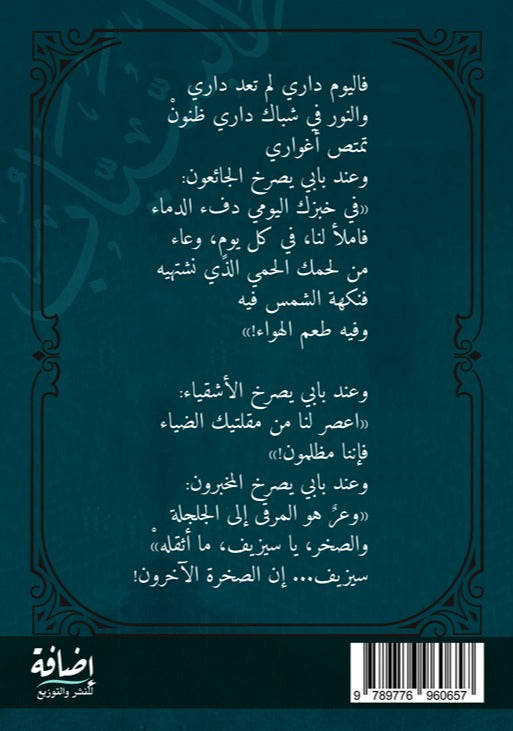 فاليوم داري لم تعد داري
والنور في شباك داري ظنونْ
تمتص أغواري
وعند بابي يصرخ الجائعون:
«في خبزك اليومي دفء الدماء
فاملأ لنا، في كل يوم، وعاء
من لحمك الحي الذي نشتهيه
فنكهة الشمس فيه
وفيه طعم الهواء!»
وعند بابي يصرخ الأشقياء:
«اعصر لنا من مقلتيك الضياء
فإننا مظلمون!»
وعند بابي يصرخ المخبرون:
«وعرٌ هو المرقى إلى الجلجلة
والصخر، يا سيزيف، ما أثقلهْ»
سيزيف... إن الصخرة الآخرون!
إضافة
للنشر والتوزيع
9 789776 960657